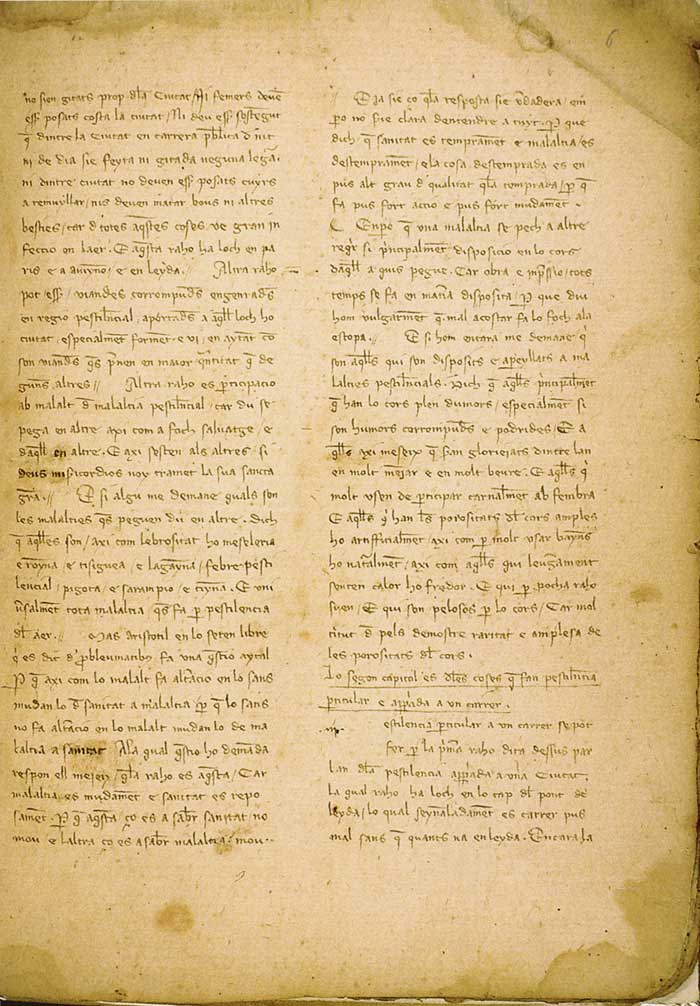 6
no sien gitats prop dla Ciutat / Ni femers deuē
esſ posats costa la ciutat / Ni deu esſ sostengut
q̄ dintre la Ciutat en carrera pблica d nit
ni de dia sie feyta ni gitada neguna legēa
ni dintre ciutat no deuen esſ posats cuyrs
a remullar / nis deuen matar bous ni altres
besties / car d totes aq̄stes coses ve gran in
feccio on laer. E aq̄sta raho ha loch en pa
ris e a / e en leyda. Altra raho
pot esſ / viandes corrompuds engenrads
en regio pestilncial / aportads a aq̄ll loch ho
ciutat / especialmet forment e vi / en aytat co
son viands q̄s prnen en maior q̄ntitat q̄ de
guns altres // Altra raho es prticipacio
ab malalt d malaltia pestilncial / car du se
pega en altre axi com a foch saluatge / e
daq̄ll en altre. E axi sesten als altres / si
deus misicordios noy tramet la sua sancta
grā. E si algu me demane quals son
les malalties q̄s peguen dū en altre. Dich
q̄ aq̄lles son / axi com lebrositat ho meseleria
e royna / e tisiguea / e lagayna / febre pesti
lencial / pigota / e sarampio / e tiyna. E vni
ūsalmet tota malaltia q̄s fa p pestilencia
dl aer // Mas aristotil en lo seten libre
q̄ es dit d probleumatibus fa vna q̄stio aytal
P q̄ axi com lo malalt fa altacio en lo sans
mudanlo d sanitat a malaltia / p q̄ lo sans
no fa altacio en lo malalt mudanlo de ma
laltia a sanitat A la qual q̄stio ho demāda
respon ell meseix / q̄ la raho es aq̄sta / Car
malaltia es mudamēt e sanitat es repo
samēt. P q̄ aq̄sta ço es a sabr sanitat no
mou e laltra ço es a sabr malaltia / mou
E ja sie co q̄ la resposta sie vdadera / em
po no sie clara dentendre a tuyt. P que
dich q̄ sanitat es tempramēt e malaltia / es
destempramēt / e la cosa destemprada es en
pus alt grau d qualitat q̄ la temprada / p q̄
fa pus fort accio e pus fort mudamēt.
C Enpo q̄ vna malaltia se pech a altre
reqr si principalmet disposicio en lo cors
daq̄ll a quis pegue. Car obra e impssio / tots
temps se fa en maīa disposita / P que diu
hom vulgarmēt q̄ mal acostar fa lo foch a la
estopa. E si hom encara me demane q̄
son aq̄lls qui son disposits e apeyllats a ma
lalties pestilncials. Dich q̄ aq̄lls principalmēt
q̄ han lo cors plen dumors / especialmēt si
son humors corrompuds e podrides / E a
q̄lls axi meseix q̄ san gloriejats dintre lan
en molt mējar e en molt beure. E aq̄lls q̄
molt vsen de prticipar carnalmēt ab fembra
E aq̄lls q̄ han ls porositats dl cors amples
ho artificialmēt / axi com p molt vsar bayns
ho natalmēt / axi com aq̄lls qui leugament
senten calor ho fredor. E qui p pocha raho
suen / E qui son pelosos p lo cors / Car mol
titut d pels demostre raritat e amplesa de
les porositats dl cors.
Lo segon capitol es dles coses q̄ fan pestilncia
prticular e appada a vn carrer.
estilencia prticular a vn carrer se pot
fer p la pma raho dita dessus par
lan dla pestilencia appada a vna Ciutat
la qual raho ha loch en lo cap dl pont de
leyda / lo qual seynaladamēt es carrer pus
mal sans q̄ quants na en leyda. Encara la